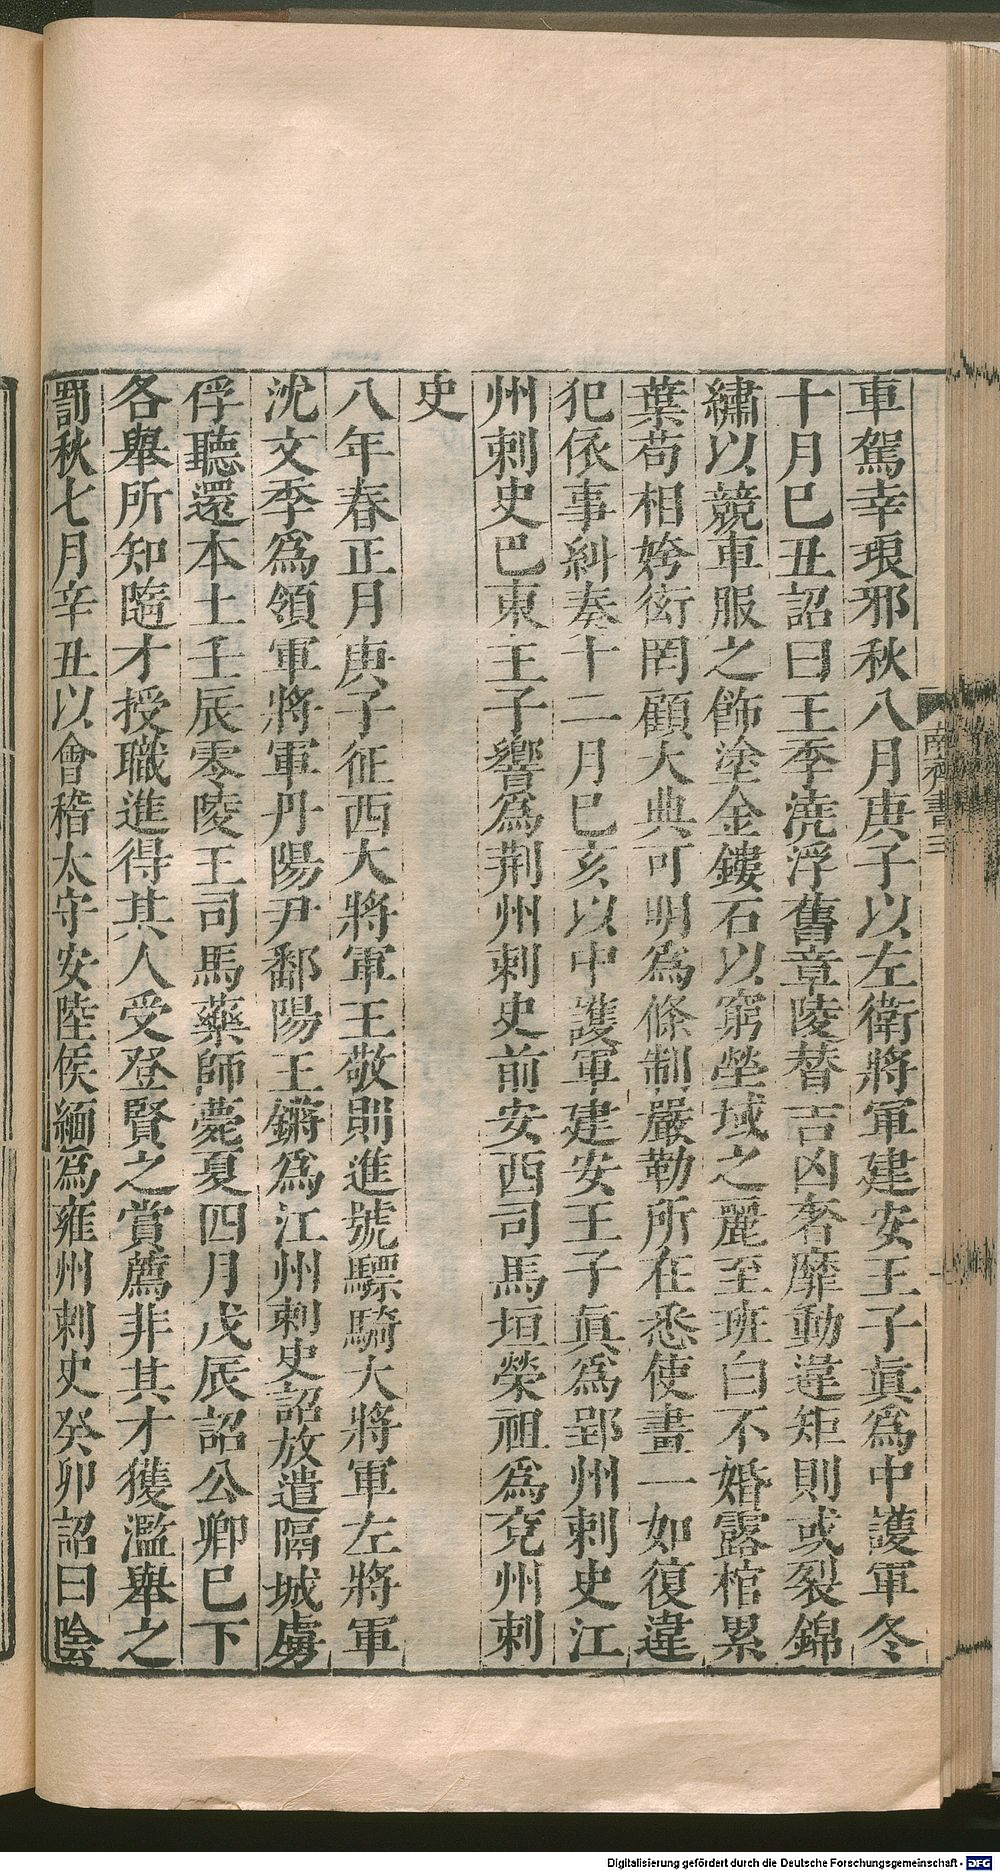 車駕幸琅邪秋八月庚子以左衛將軍建安王子眞爲中護軍冬
十月巳丑詔曰三季澆浮舊章陵替吉凶奢靡動違矩則或裂錦
繡以競車服之飾塗金鏤石以窮塋域之麗至班白不婚露棺累
葉苟相姱衒罔顧大典可明爲條制嚴勒所在悉使畫一如復違
犯依事糾奏十二月巳亥以中護軍建安王子眞爲郢州刺史江
州刺史巴東王子響爲荆州刺史前安西司馬垣榮祖爲兗州刺
史
八年春正月庚子征西大將軍王敬則進號驃騎大將軍左將軍
沈文季爲領軍將軍丹陽尹鄱陽王鏘爲江州刺史詔放遣隔城虜
俘聽還本土壬辰零陵王司馬藥師薨夏四月戊辰詔公卿巳下
各舉所知隨才授職進得其人受登賢之賞薦非其才獲濫舉之
罰秋七月辛丑以會稽太守安陸侯緬爲雍州刺史癸卯詔曰陰
南齊書三
Digitalisierung gefördert durch die Deutsche Forschungsgemeinschaft - DFG